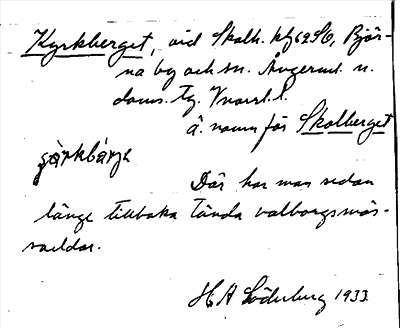 Kyrkberget, vid Skolh. kf 62 S6, Björ-
na by och sn. Ångerml. n.
doms. tg. Vnorrl. l.
ä. namn för Skolberget
Där har man sedan
länge tillbaka tända valborgsmäs-
soeldar.
H A Söderberg 1933